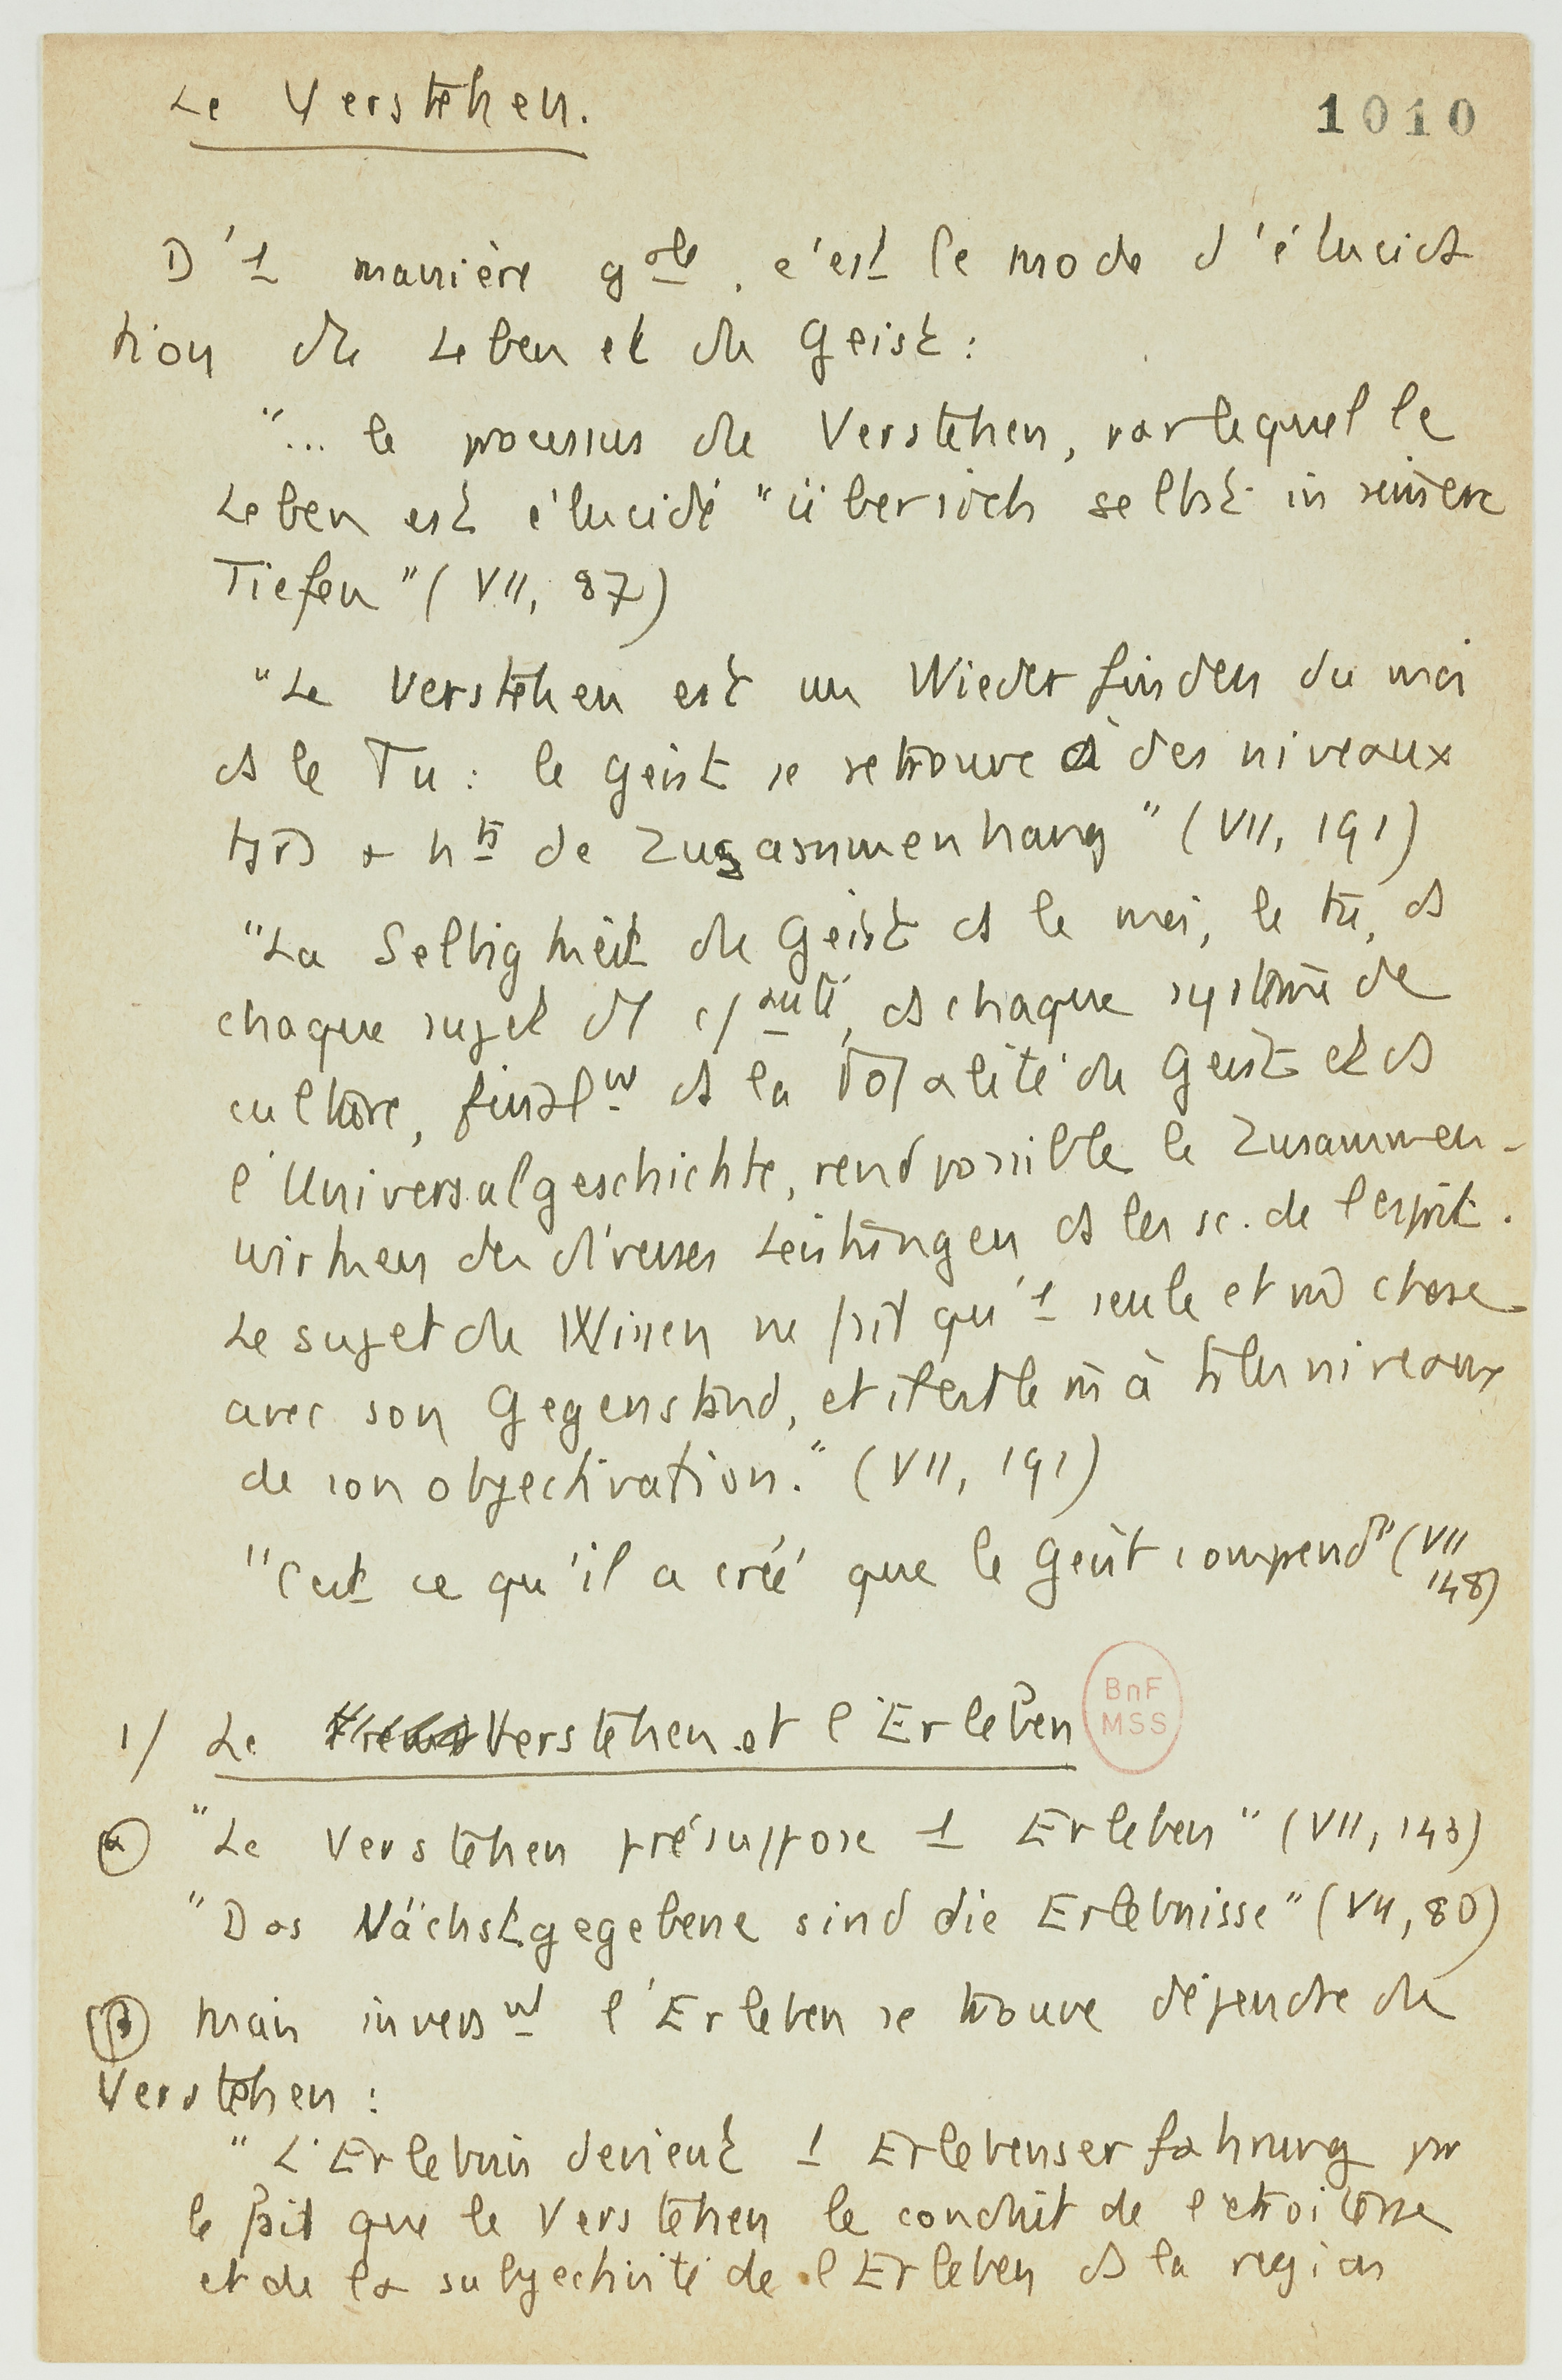 Le Verstehen.
1010
D'1 manière gale, c'est le mode d'élucida
tion du Leben et du Geist :
"... le processus du Verstehen, par lequel le
Leben est élucidé "über sich selbst in seinere
Tiefen" (VII, 87)
"Le Verstehen est un Wiederfinden du moi
ds le Tu : le Geist se retrouve à des niveaux
tjrs + hts de Zusammenhang" (VII, 191)
"La Selbigkeit du Geist ds le moi, le tu, ds
chaque sujet d' c/auté, ds chaque système de
culture, finalnt ds la Totalité du Geist et ds
l'Universalgeschichte, rend possible le Zusammen-
wirken des diverses Leistungen ds les sc. de l'esprit.
Le sujet du Wissen ne fait qu'1 seule et m̂ chose
avec son Gegenstand, et il est le m̂ à ts les niveaux
de son objectivation." (VII, 191)
"C'est ce qu'il a créé que le Geist comprend" (VII
148)
1/ Le Verstehen et l'Erleben
BnF
MSS
α "Le Verstehen présuppose 1 Erleben" (VII, 143)
"Das Nächstgegebene sind die Erlebnisse" (VII, 80)
β mais inverst l'Erleben se trouve dépendre du
Verstehen :
"L'Erlebnis devient 1 Erlebenserfahrung pr
le fait que le Verstehen le conduit de l'étroitesse
et de la subjectivité de l'Erleben ds la region